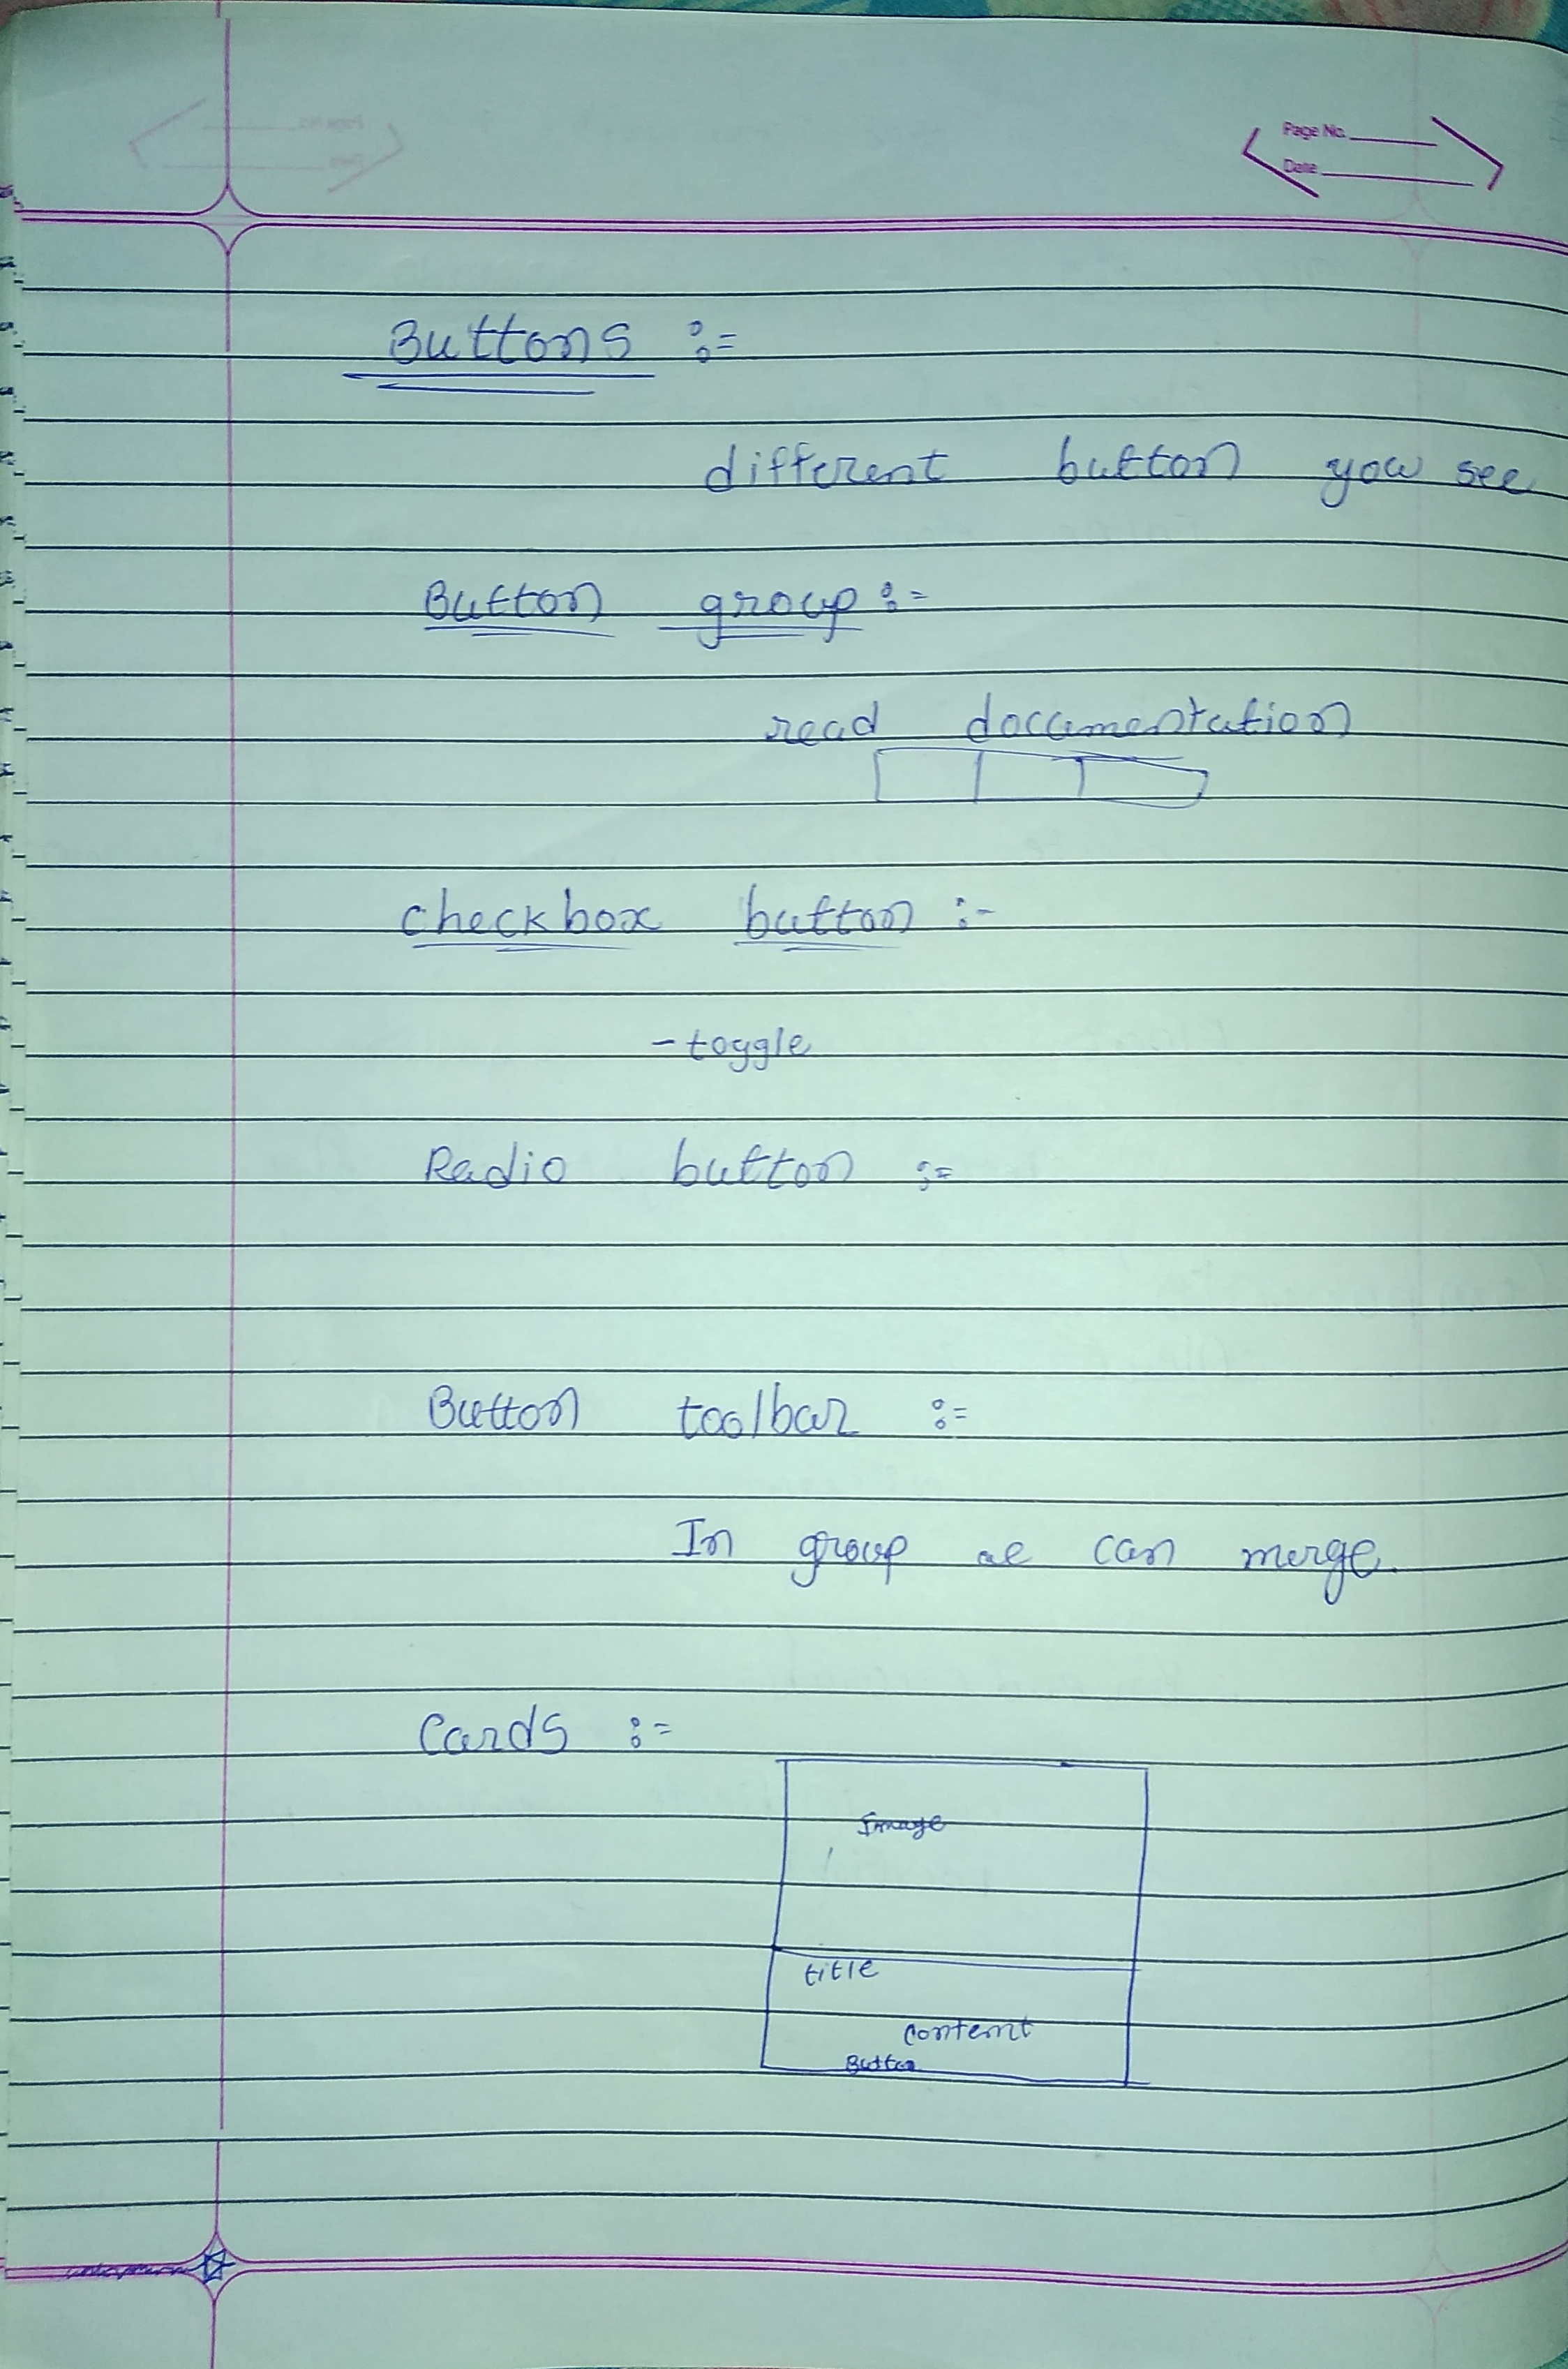 Page No.
Date
Buttons :=
different button you see
Button group :=
read documentation
checkbox button :-
- toggle
Radio button :=
Button toolbar :=
In group we can merge.
Cards :=
Image
title
content
Button